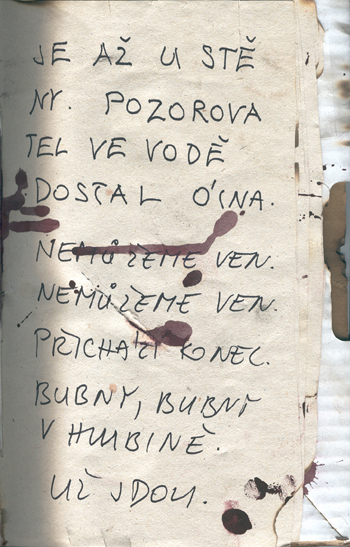 JE AŽ U STĚ
NY. POZOROVA
TEL VE VODĚ
DOSTAL ÓINA.
NEMŮŽEME VEN.
NEMŮŽEME VEN.
PŘICHÁZÍ KONEC.
BUBNY, BUBNY
V HLUBINĚ.
UŽ JDOU.